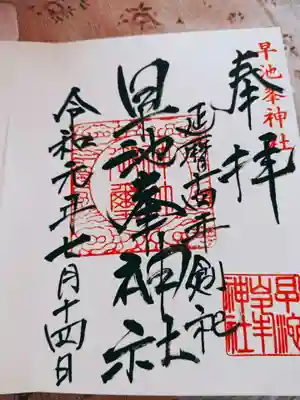 早池峯神社
奉拝
延暦十四年創祀
早池峯神社
令和元年七月十四日
早池峯神社